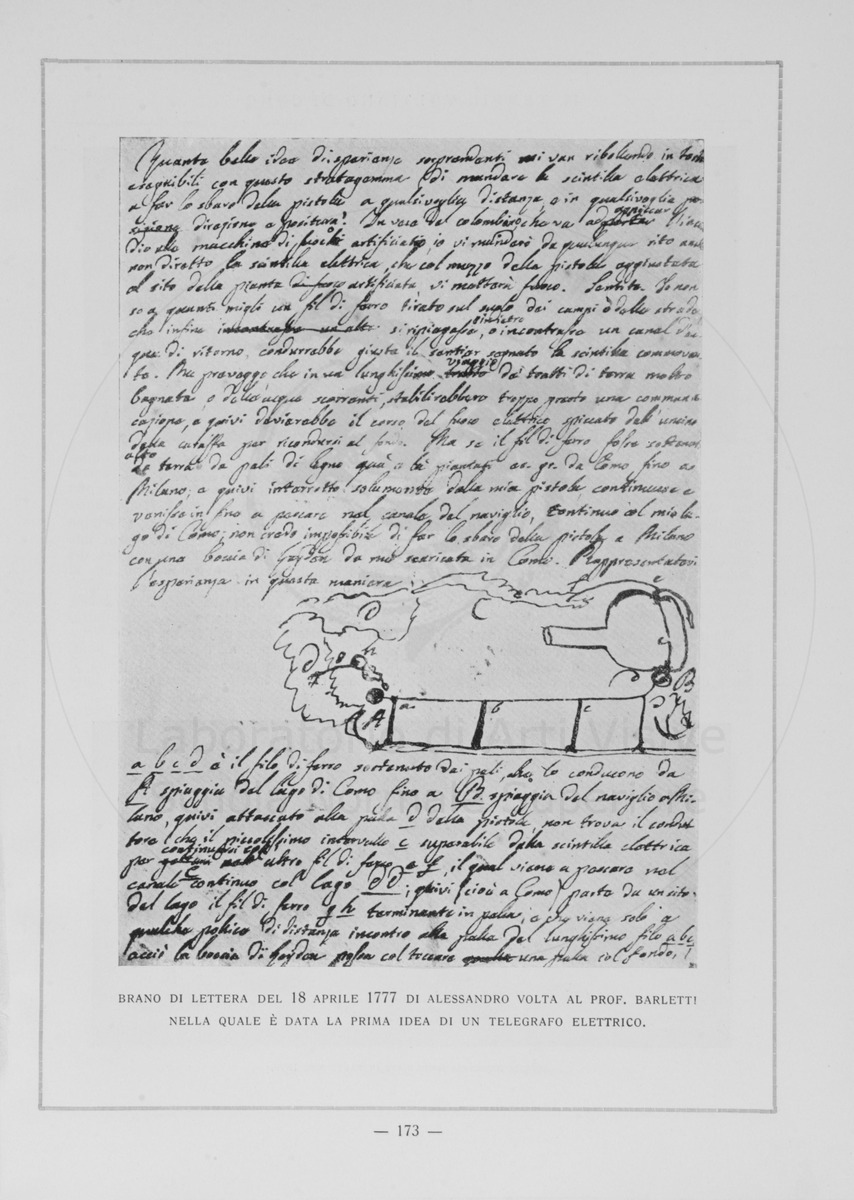 Quanto belle idee di sperienze sorprendenti mi van ribollendo in testa
eseguibili con questo stratagemma di mandare la scintilla elettrica
a far lo sbaro della pistola a qualsivoglia distanza, e in qualsivoglia
direzione e positura! In vece del colombino che va a
alla macchina di fuochi artificiato, io vi manderò da qualunque sito anche
non diretto la scintilla elettrica, che col mezzo della pistola aggiustata
al sito della pianta di fuoco artificiata vi metterà fuoco. Sentite. Io non
so a quanti migli un fil di ferro tirato sul suolo dei campi o della strada
che infine incontrasse un altro si ripiegasse indietro, o incontrasse un canal d'ac-
qua di ritorno, condurrebbe giusta il sentier segnato la scintilla commoven-
te. Ma preveggo che in un lunghissimo viaggio tratto de' tratti di terra molto
bagnata, o dell'acque scorrenti, stabilirebbero troppo presto una communi-
cazione, e quivi devierebbe il corso del fuoco elettrico spiccato dall'uncino
della caraffa per ricondursi al fondo. Ma se il fil di ferro fosse sostenuto
alto da terra da pali di legno quà e là piantati ex. gr. da Como fino a
Milano; e quivi interrotto solamente dalla mia pistola continuasse e
venisse in fine a pescare nel canale del naviglio, continuo col mio la-
go di Como; non credo impossibile di far lo sbaro della pistola a Milano
con una boccia di Leyden da me scaricata in Como. Rappresentatevi
l'esperienza in questa maniera
D C e
D h
A a b c d B
a b c d è il filo di ferro sostenuto dai pali, che lo conducono da
A spiaggia del lago di Como fino a B spiaggia del naviglio a Mi-
lano, quivi attaccato alla palla d della pistola, non trova il condut-
tore (che il piccolissimo intervallo e superabile dalla scintilla elettrica
per continuarsi coll' altro fil di ferro e f, il qual viene a pescare nel
canale C continuo col lago D D; quivi (cioè a Como) parte da un sito
del lago il fil di ferro g h terminante in palla, e che viene solo a
qualche pollice di distanza incontro alla palla del lunghissimo filo a b c,
acciò la boccia di Leyden possa col toccare una palla col fondo,
Laboratorio di Arti Visive
BRANO DI LETTERA DEL 18 APRILE 1777 DI ALESSANDRO VOLTA AL PROF. BARLETTI
NELLA QUALE È DATA LA PRIMA IDEA DI UN TELEGRAFO ELETTRICO.
— 173 —